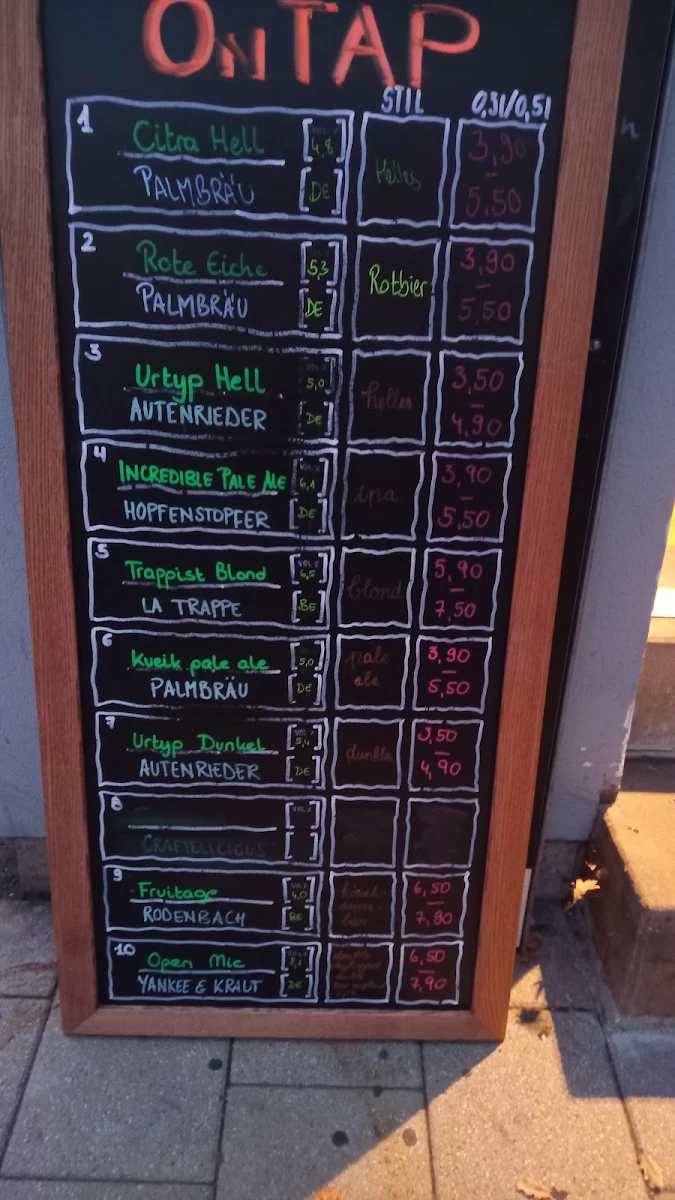 OnTAP
STIL 0,3l/0,5l
1 Citra Hell 4,8
PALMBRÄU DE
Helles
3,90
–
5,50
2 Rote Eiche 5,3
PALMBRÄU DE
Rotbier
3,90
–
5,50
3 Urtyp Hell 5,0
AUTENRIEDER DE
helles
3,50
–
4,90
4 INCREDIBLE PALE ALE 6,1
HOPFENSTOPFER DE
ipa
3,90
–
5,50
5 Trappist Blond VOL% 6,5
LA TRAPPE BE
blond
5,90
–
7,50
6 Kveik pale ale 5,0
PALMBRÄU DE
pale
ale
3,90
–
5,50
7 Urtyp Dunkel 5,4
AUTENRIEDER DE
dunkles
3,50
–
4,90
8 VOL%
CRAFTELICIOUS
9 Fruitage 4,0
RODENBACH BE
6,50
–
7,90
10 Open Mic
YANKEE & KRAUT DE
6,50
–
7,90